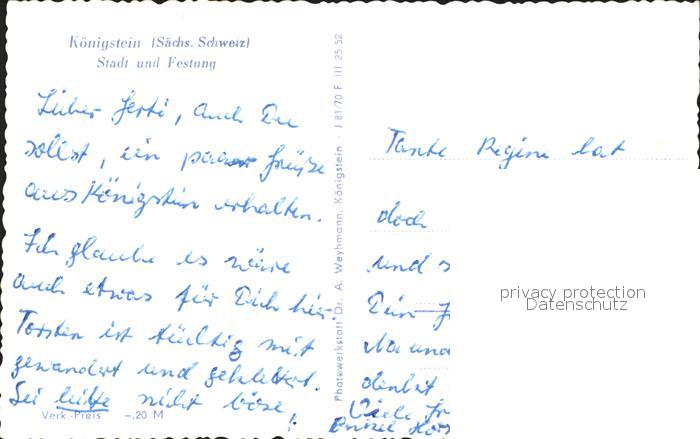 Königstein (Sächs. Schweiz)
Stadt und Festung
Lieber Gerti, auch Du
sollst, ein paar Grüße
aus Königstein erhalten.
Ich glaube es wäre
auch etwas für Dich hier.
Torsten ist tüchtig mit
gewandert und geklettert.
Sei bitte nicht böse,
Verk.-Preis -,20 M
Photowerkstatt Dr. A. Weyhmann, Königstein · J 81/70 F III 25 52
Tante Regine hat
doch
und s
Dein
denkst
Viele
Onkel
privacy protection
Datenschutz